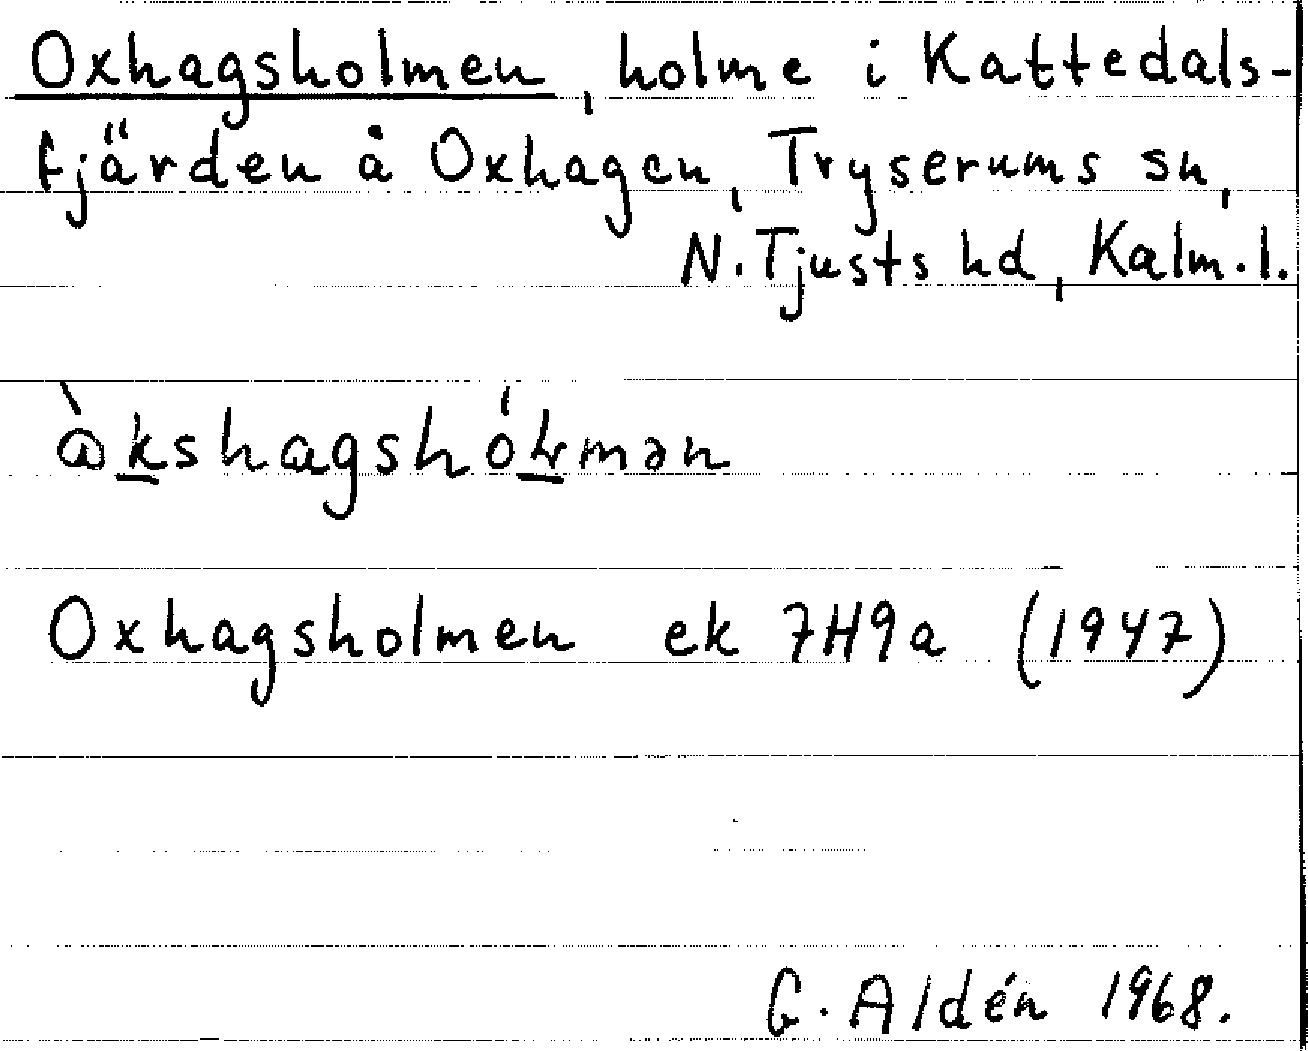 Oxhagsholmen, holme i Kattedals-
fjärden å Oxhagen, Tryserums sn,
N. Tjusts hd, Kalm. l.
Oxhagsholmen ek 7H9a (1947)
G. Aldén 1968.